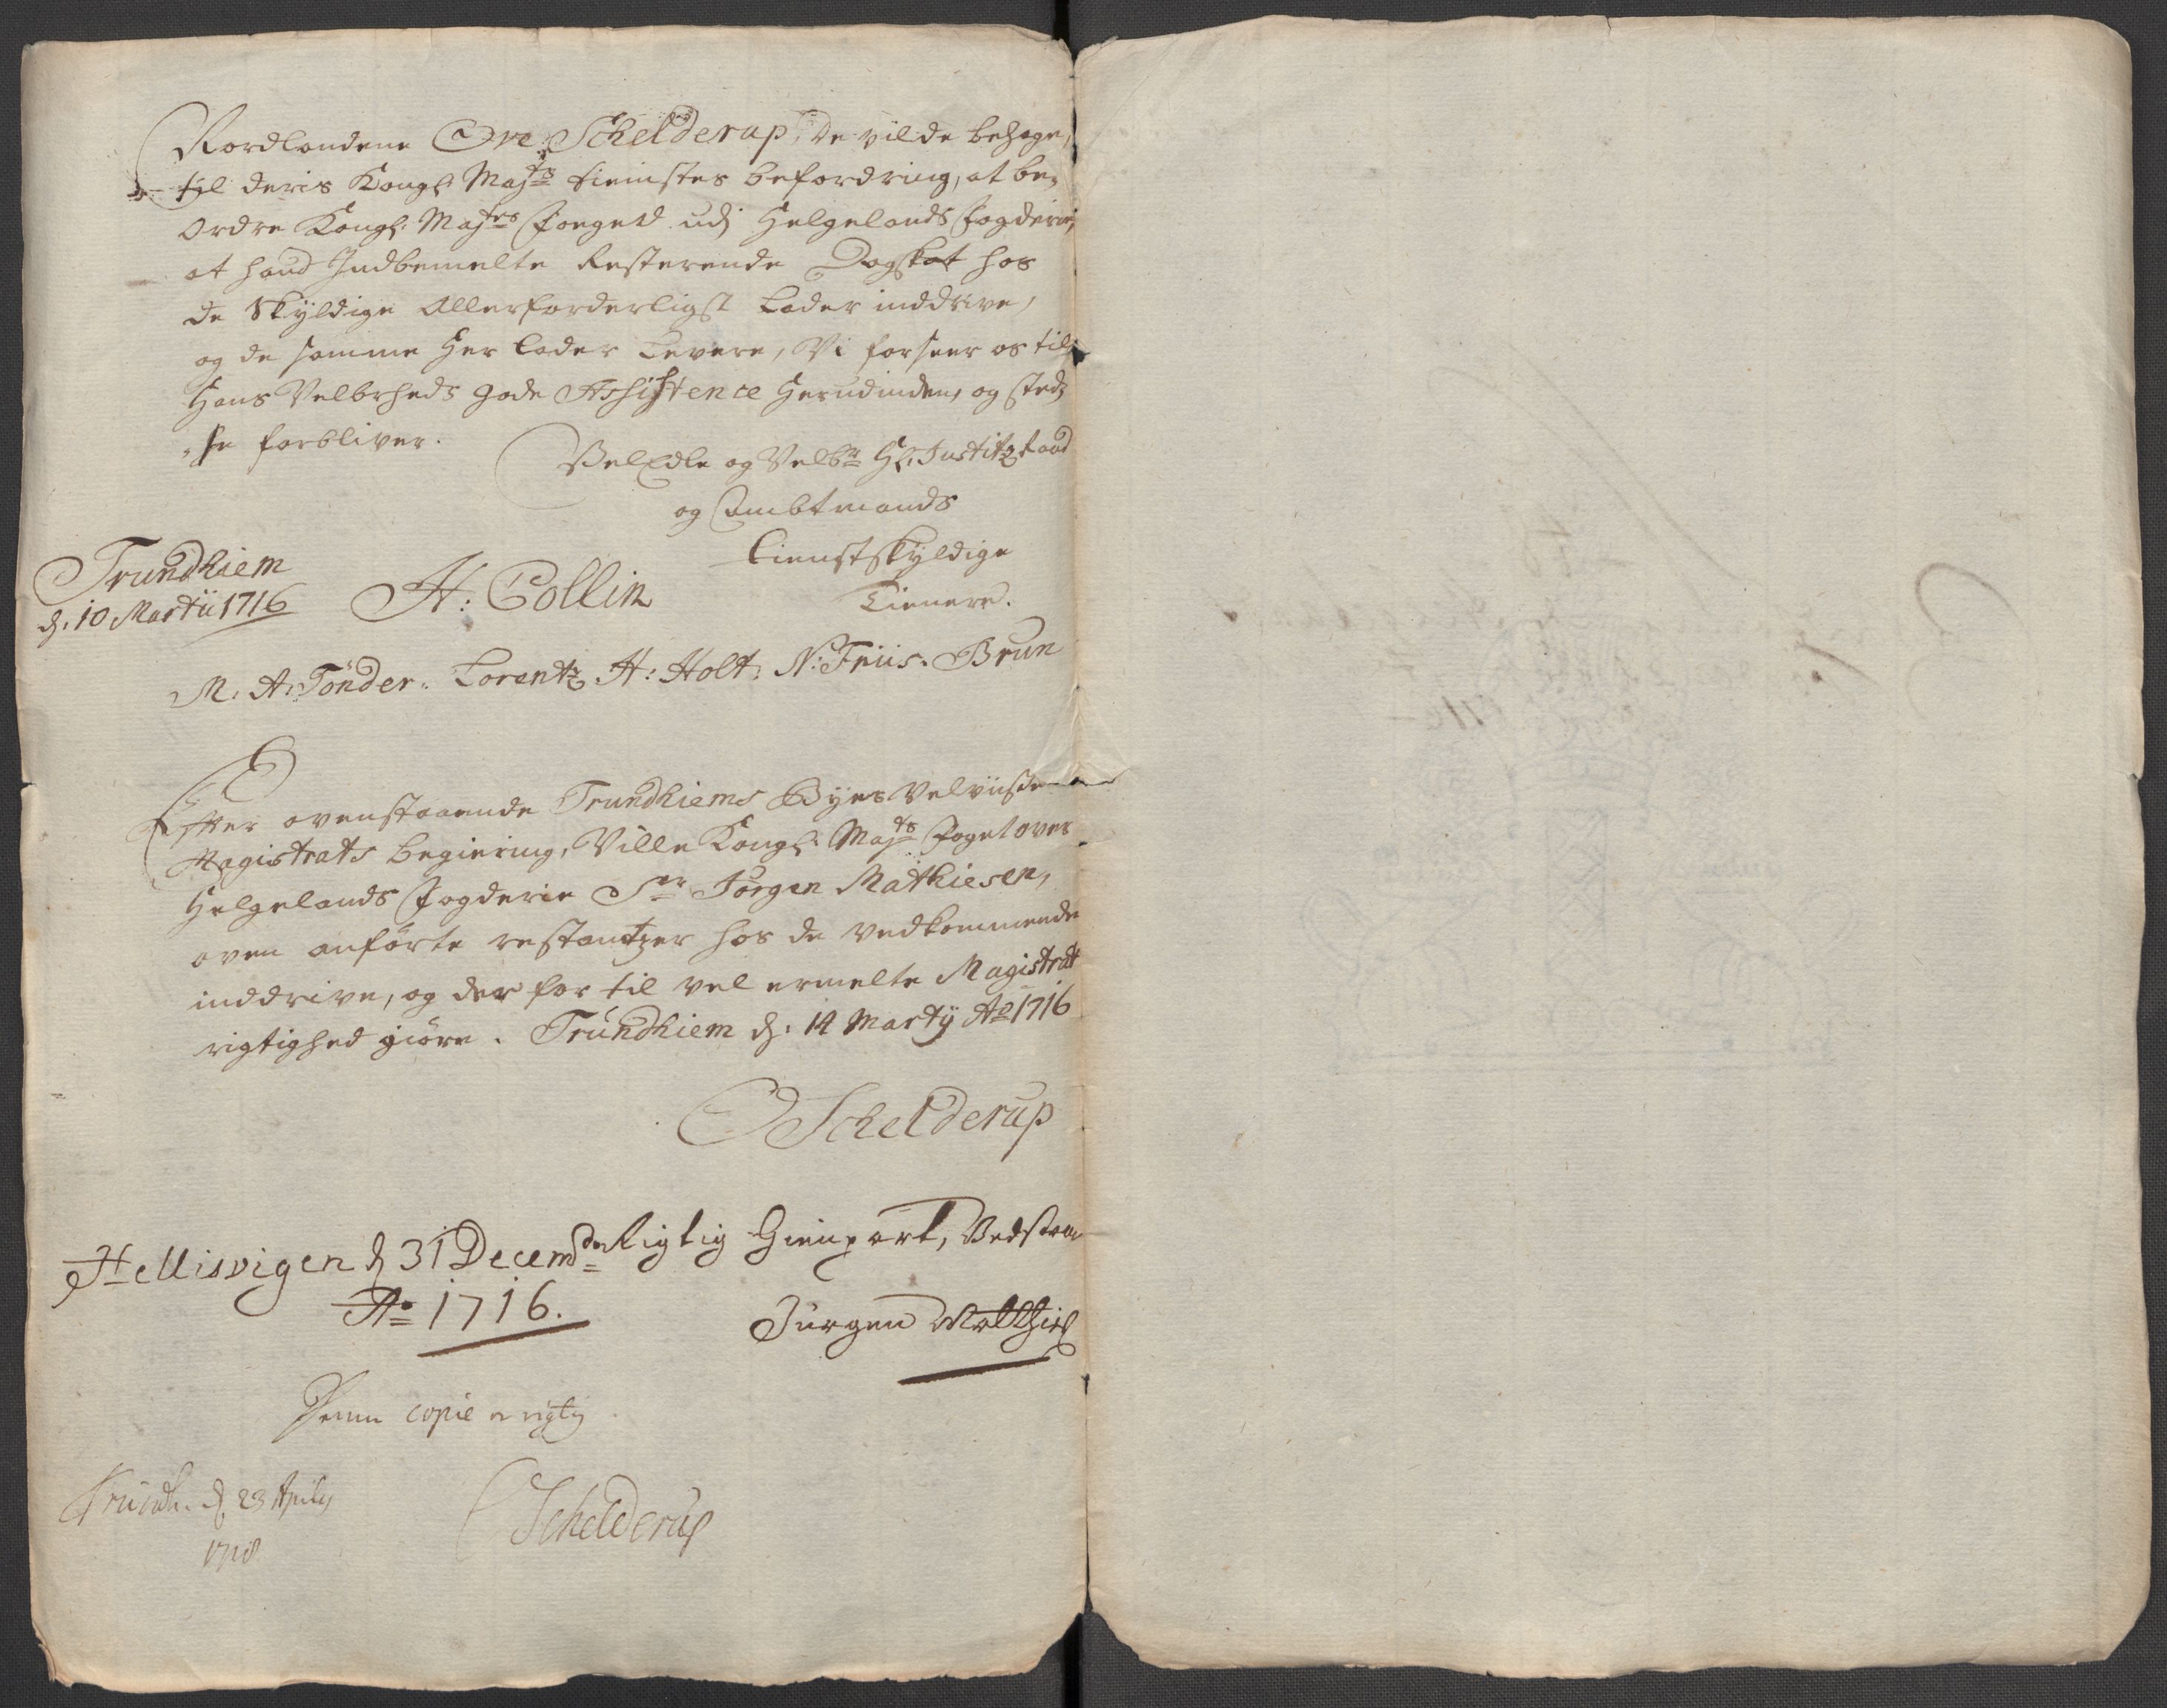 Nordlandene Ove Schelderup, De vilde behage,
til deris Kongl: Majts tienistes befordring, at be-
ordre Kongl: Majts Foeget udj Helgelands Fogderie,
at hand Indbemelte Resterende Dagskat hos
de Skÿldige Allerforderligst Lader inddrive,
og de samme her lader Levere, Vi forseer os til
Hans Velbrheds gode Assistence herudinden, og stedz
se forbliver.
VelEdle og Velbr Hr: Justitz
og Ambtmands
tienstskÿldige
Tienere.
Trundhiem
d: 10 Martii 1716
H: Collin
M: A: Tönder. Lorentz H: Holt. N: Friis. Brun
Efter ovenstaaende Trundhiems Byes Velviise
Magistrats begiering, Ville Kongl: Majts Foget over
Helgelands Fogderie Sr Jörgen Mathiesen,
oven anförte restantzer hos de vedkommende
inddrive, og der for til vel ermelte Magistrat
rigtighed giöre. Trundhiem d: 14 Martÿ Ao 1716
O Schelderup
Hellisvigen d 31 Decembr Rigtig Gienpart, Bedstaar
Ao 1716.
Jürgen Matthies
Denne copie er rigtig
Trundh. d 23 Aprily
1718
O Schelderup